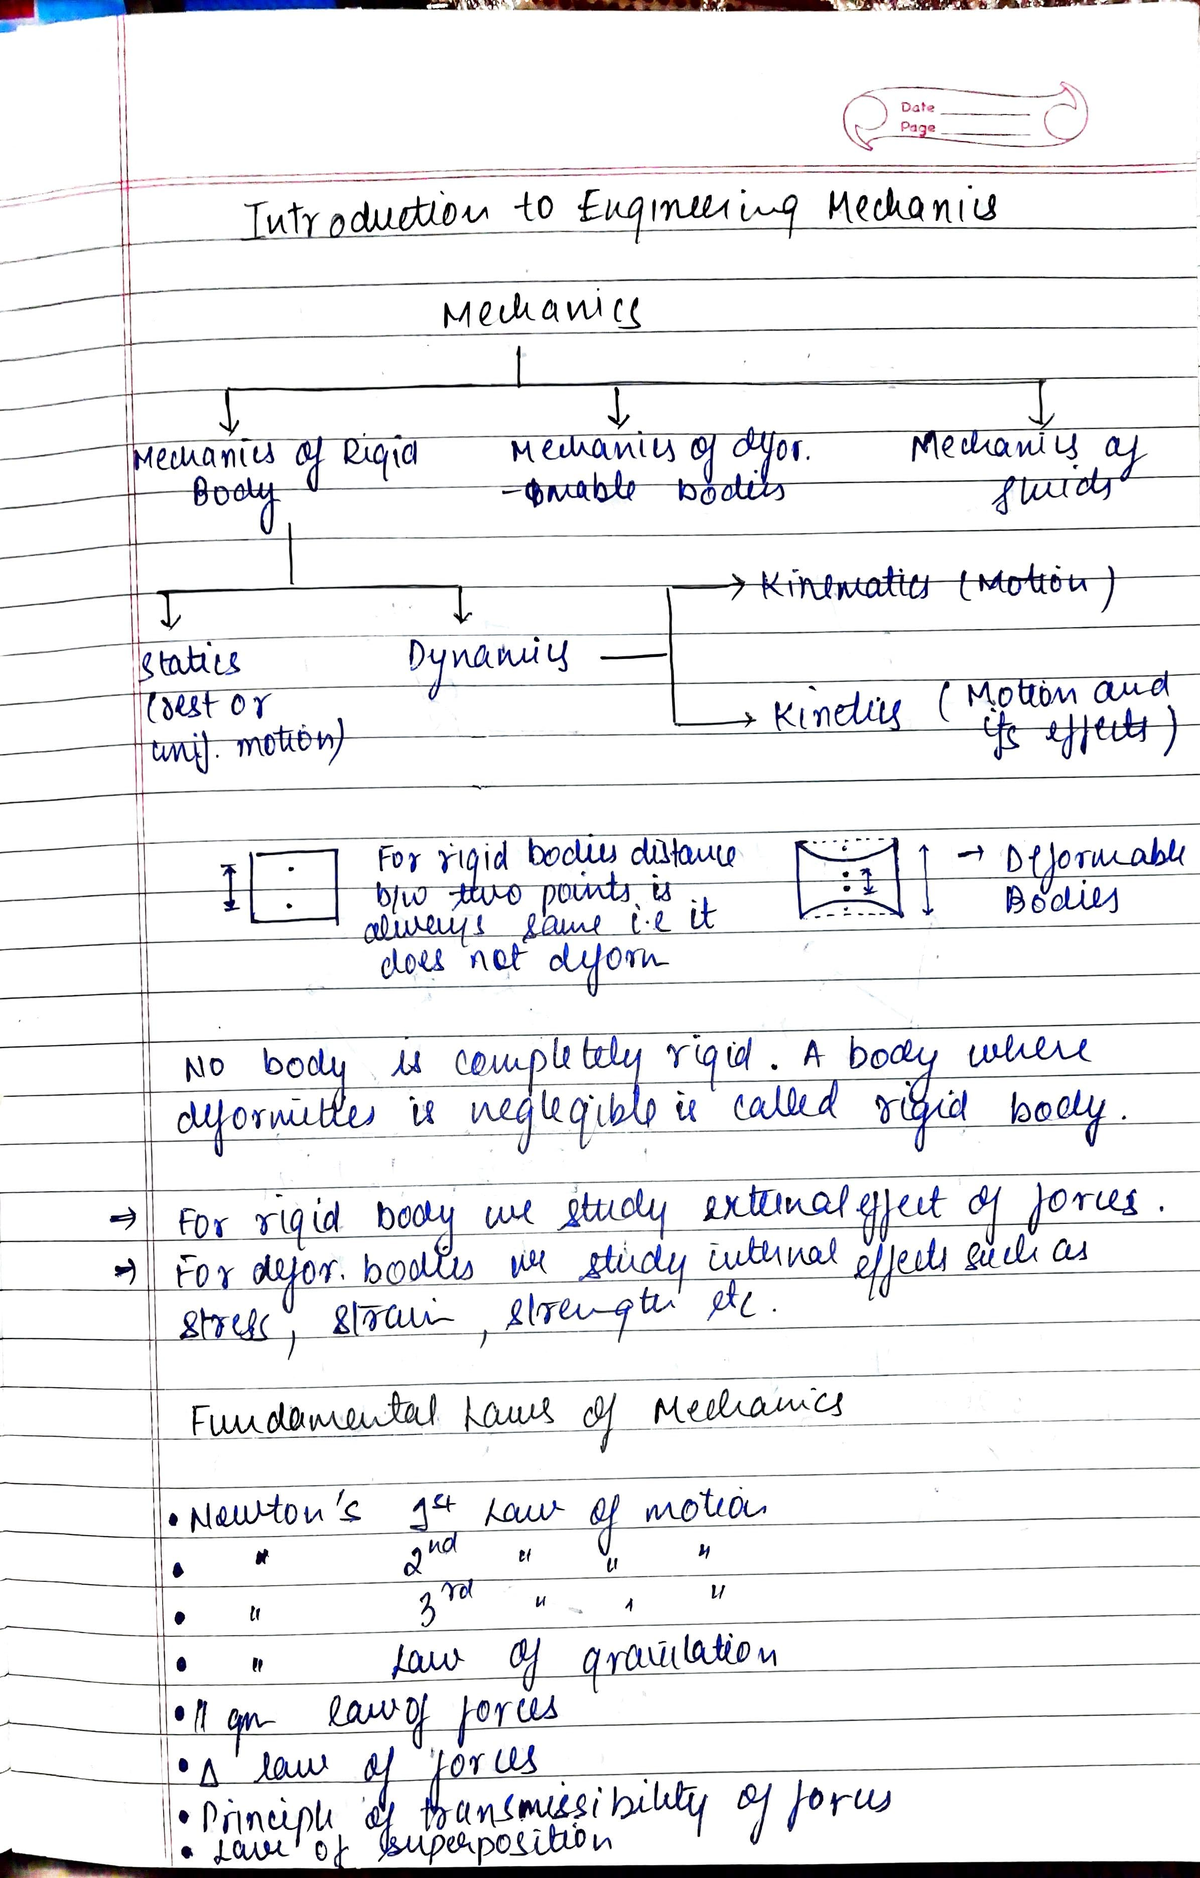 Date
Page
Introduction to Engineering Mechanics
Mechanics
Mechanics of Rigid
Body
Mechanics of defor.
-omable bodies
Mechanics of
fluids
Kinematics (Motion)
Statics
(rest or
unif. motion)
Dynamics
Kinetics (Motion and
its effects)
For rigid bodies distance
b/w two points is
always same i.e it
does not deform
→ Deformable
Bodies
No body is completely rigid. A body where
deformities is neglegible is called rigid body.
⇒ For rigid body we study external effect of forces.
⇒ For defor. bodies we study internal effects such as
stress, strain, strength etc.
Fundamental Laws of Mechanics
• Newton's 1st Law of motion
• " 2nd " " "
• " 3rd " " "
• " Law of gravitation
• || gm law of forces
• Δ law of forces
• Principle of transmissibility of forces
• Law of superposition